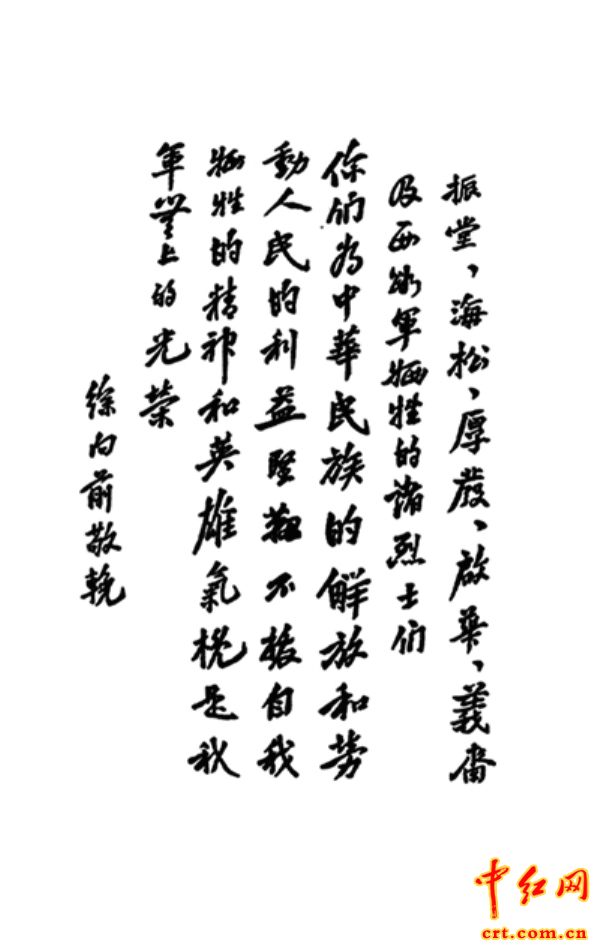 振堂、海松、厚發、啟華、義齋
及西路軍牺牲的諸烈士们
你们为中華民族的解放和劳
動人民的利益坚韌不拔自我
牺牲的精神和英雄氣概是我
軍無上的光榮
徐向前敬輓
中红网
crt.com.cn